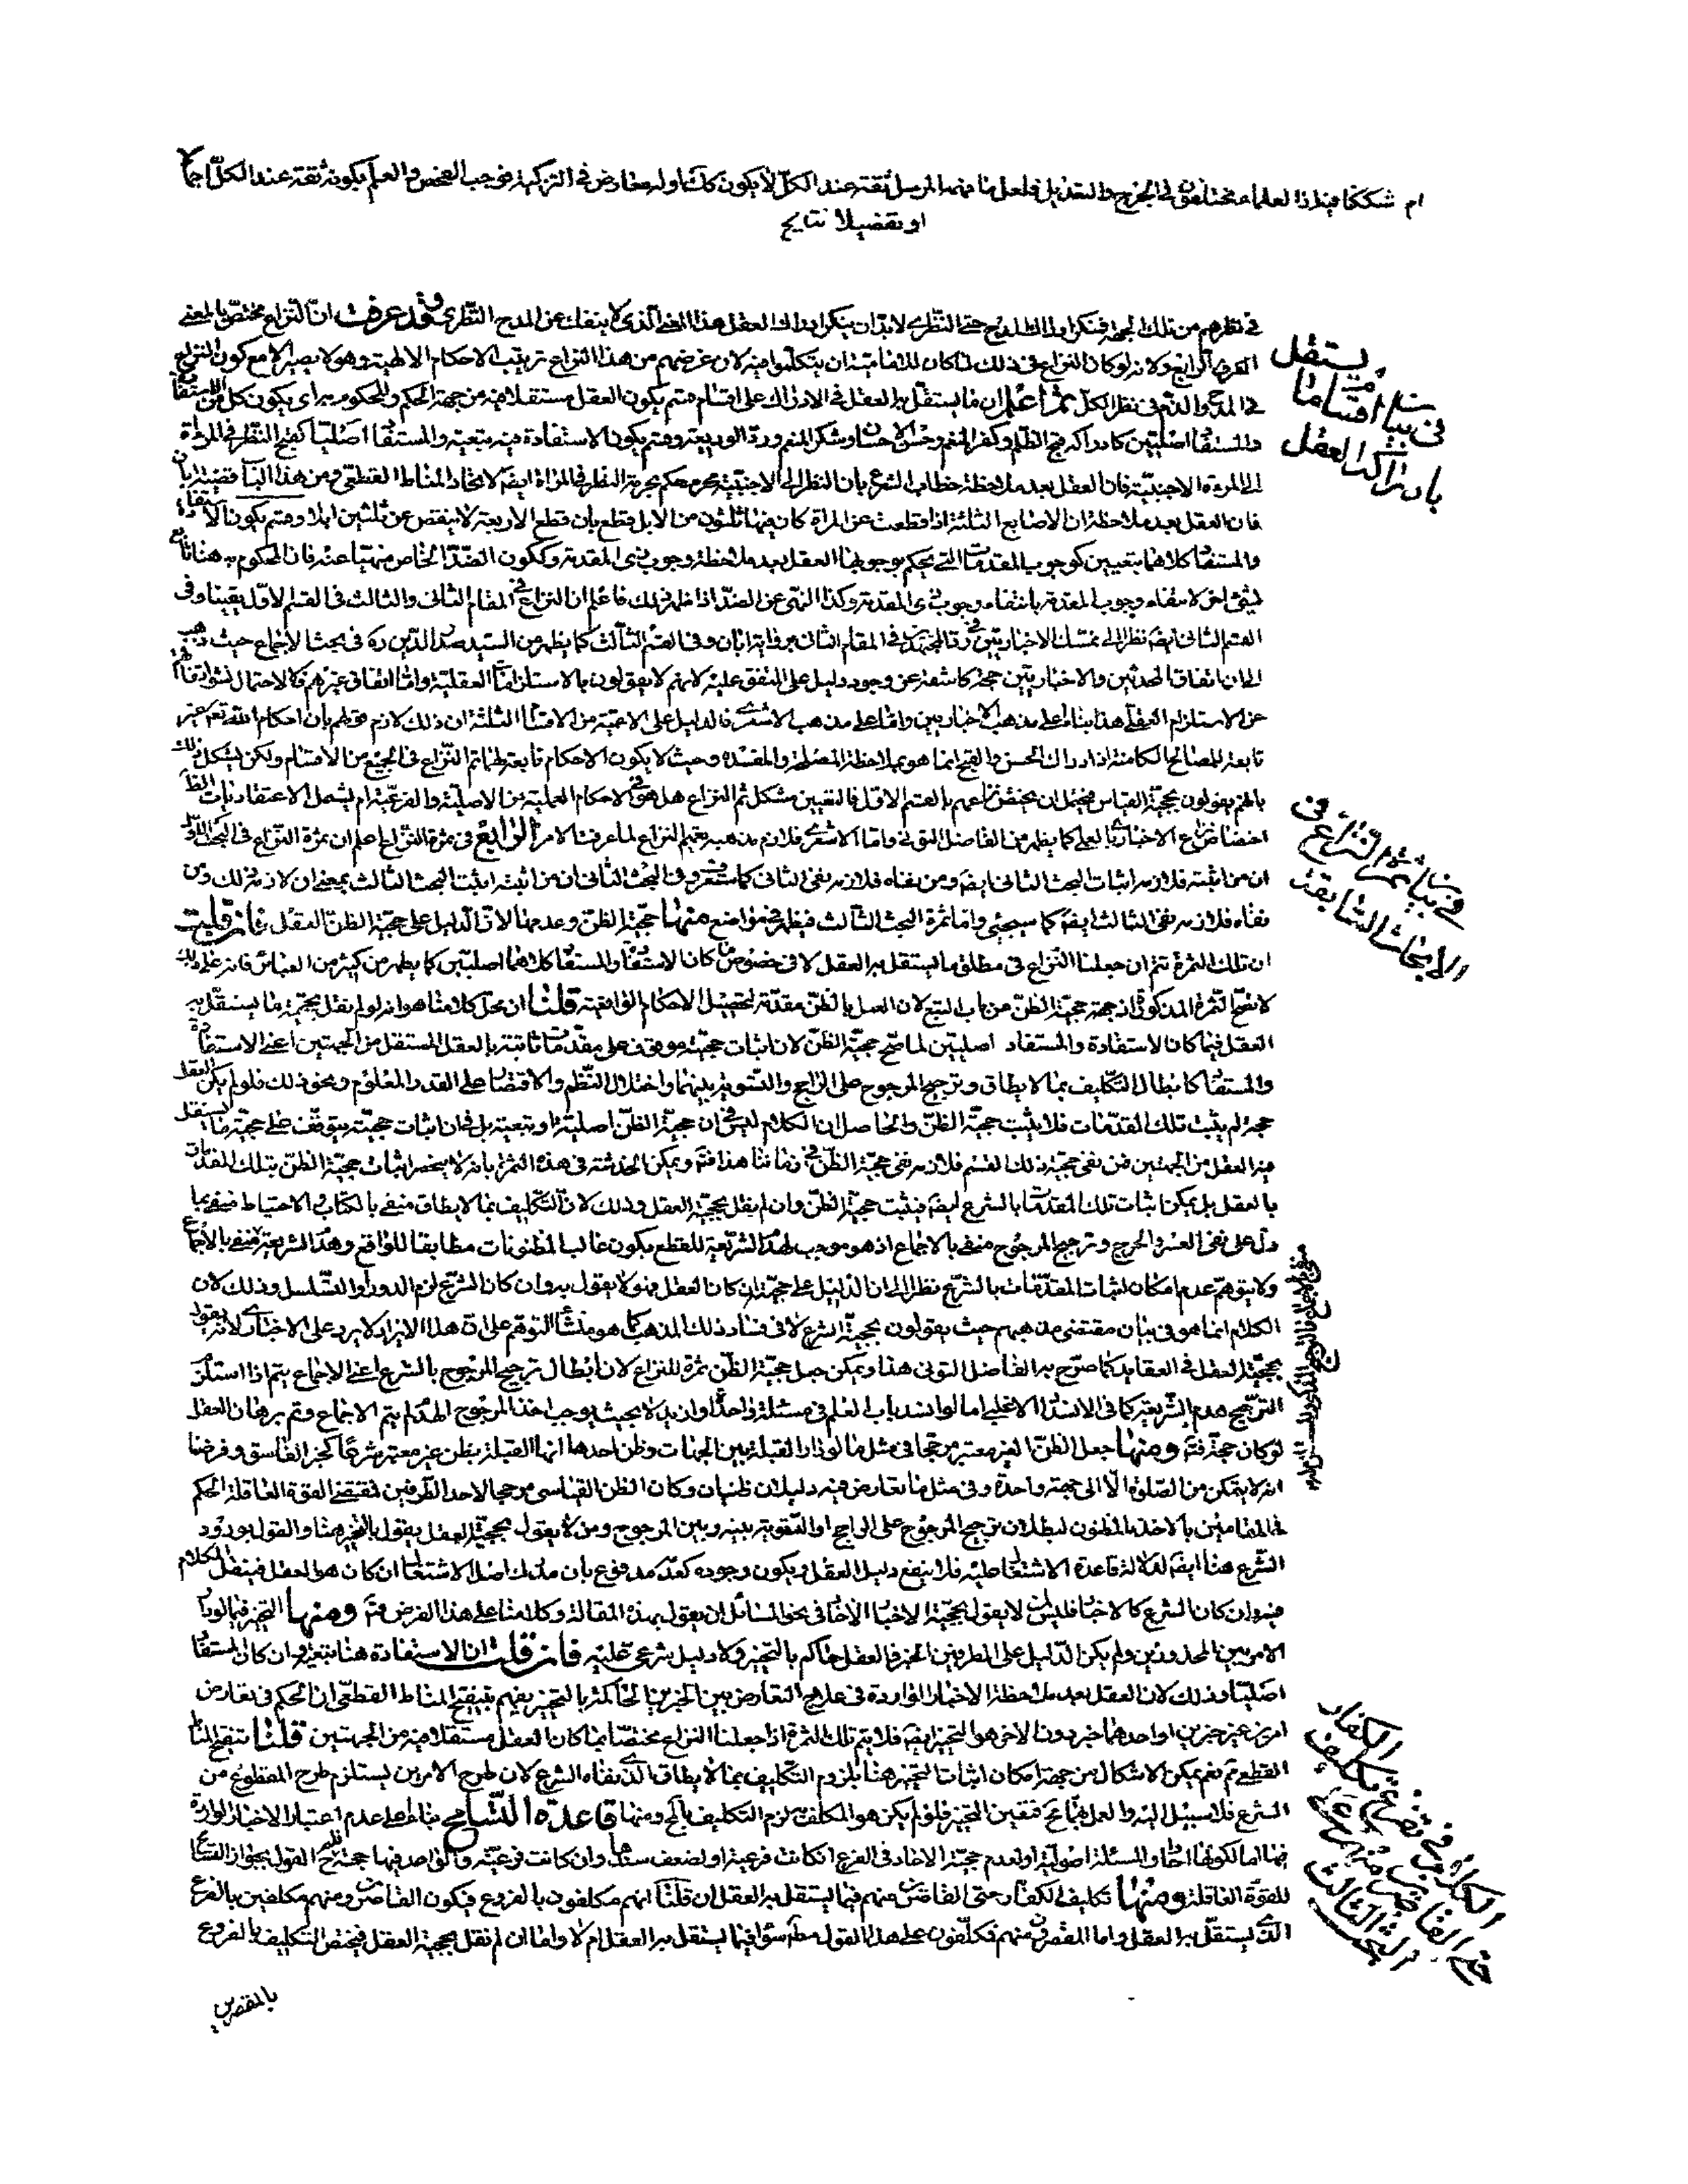 ام شككنا فيه اذ العلماء مختلفون فى الجرح والتعديل فلعل ما فهمه المرسل ثقة عند الكل لا يكون كك او له معارض فى التزكية فوجب الفحص والعلم بكونه ثقة عند الكل اجمالا
او تفضيلا نتايج
فى نظرهم من تلك الجهة فمنكر ادراك المدح حتى النظرى لا بد ان ينكر ادراك العقل هذا المعنى الذى لا ينفك عن المدح النظرى وقد عرفت ان النزاع مختص بالمعنى
الرابع ولانه لو كان النزاع فى ذلك لما كان للاماميه ان يتكلموا فيه لان غرضهم من هذا النزاع ترتيب الاحكام الالهية وهو لا يصير الا مع كون النزاع
فى المدح والذم فى نظر الكل ثم اعلم ان ما يستقل به العقل فى الادراك على اقسام قسم يكون العقل مستقلا فيه من جهة الحكم والمحكوم به اى يكون كل من الاستفادة
والمستفاد اصليتين كادراكه قبح الظلم وكفر المنعم وحسن الاحسان وشكر المنعم ورد الوديعة وقسم يكون الاستفادة فيه تبعية والمستفاد اصليا كقبح النظر فى المرءاة
الى المرءة الاجنبية فان العقل بعد ملاحظة خطاب الشرع بان النظر الى الاجنبية محرم يحكم بحرمة النظر فى المراة ايضا لاتحاد المناط القطعى ومن هذا الباب قضية ابان
فان العقل بعد ملاحظة ان الاصابع الثلثة اذا قطعت عن المراة كان فيها ثلثون من الابل قطع بان قطع الاربعة لا ينقص عن ثلثين ابلا وقسم يكون الاستفادة
والمستفاد كلاهما تبعيين كوجوب المقدمات التى يحكم بوجوبها العقل بعد ملاحظة وجوب ذى المقدمة وككون الضد الخاص منهيا عنه فان المحكوم به هنا تابع
لشئ اخر لانتفاء وجوب المقدمة بانتفاء وجوب ذى المقدمة وكذا النهى عن الضد اذا ظهر ذلك فاعلم ان النزاع فى المقام الثانى والثالث فى القسم الاول يقينا وفى
القسم الثانى ايضا نظرا الى تمسك الاخباريين فى رد المجتهدين فى المقام الثانى برواية ابان وفى القسم الثالث كما يظهر من السيد صدر الدين ره فى بحث الاجماع حيث ذهب
الى ان اتفاق المحدثين والاخباريين حجة كاشفة عن وجود دليل على المتفق عليه لانهم لا يقولون بالاستلزامات العقلية واما اتفاق غيرهم فلا لاحتمال نشو اتفاقهم
عن الاستلزام العقلى هذا بناء على مذهب الاخباريين واما على مذهب الاشعرى فالدليل على الاعمية من الاقسام الثلثة ان ذلك لازم قولهم بان احكام الله تعم غير
تابعة للمصالح الكامنة اذ ادراك الحسن والقبح انما هو بملاحظة المصلحة والمفسدة وحيث لا يكون الاحكام تابعة لهما تم النزاع فى الجميع من الاقسام ولكن يشكل ذلك
بانهم يقولون بحجية القياس فيحتمل ان يختص نزاعهم بالقسم الاول فالتعيين مشكل ثم النزاع هل هو فى الاحكام العملية من الاصلية والفرعية ام يشمل الاعتقاديات الظ
اختصاص نزاع الاخبارى بالعملى كما يظهر من الفاضل التونى واما الاشعرى فلازم مذهبه تعميم النزاع لما عرفت الامر الرابع فى ثمرة النزاع اعلم ان ثمرة النزاع فى البحث الاول
ان من اثبته فلازمه اثبات البحث الثانى ايضا ومن نفاه فلازمه نفى الثانى كما ستعرف وفى البحث الثانى ان من اثبته اثبت البحث الثالث بمعنى ان لازمه ذلك ومن
نفاه فلازمه نفى الثالث ايضا كما سيجئ واما ثمرة البحث الثالث فيظهر فى مواضع منها حجية الظن وعدمها لان الدليل على حجية الظن العقل فان قلت
ان تلك الثمرة تتم ان جعلنا النزاع فى مطلق ما يستقل به العقل لا فى خصوص ما كان الاستفادة والمستفاد كلاهما اصليتين كما يظهر من كثير من العباير فانه على ذلك
لا تصح الثمرة المذكورة اذ جهة حجية الظن من باب التبع لان العمل بالظن مقدمة لتحصيل الاحكام الواقعية قلنا ان محل كلامنا هو انه لو لم يقل بحجية ما يستقل به
العقل فيما كان الاستفادة والمستفاد اصليتين لما صح حجية الظن لان اثبات حجيته موقوف على مقدمات ثابتة بالعقل المستقل من الجهتين اعنى الاستفادة
والمستفاد كابطال التكليف بما لا يطاق وترجيح المرجوح على الراجح والتسوية بينهما واختلال النظم والاقتصار على القدر المعلوم ونحو ذلك فلو لم يكن العقل
حجة لم يثبت تلك المقدمات فلا يثبت حجية الظن والحاصل ان الكلام ليس فى ان حجية الظن اصلية او تبعية بل فى ان اثبات حجيته يتوقف على حجية ما يستقل
فيه العقل من الجهتين فمن نفى حجية ذلك القسم فلازمه نفى حجية الظن فى زماننا هذا فتم ويمكن الخدشة فى هذه الثمرة بانه لا ينحصر اثبات حجية الظن بتلك المقدمات
بالعقل بل يمكن اثبات تلك المقدمات بالشرع ايضا فيثبت حجية الظن وان لم يقل بحجية العقل وذلك لان التكليف بما لا يطاق منفى بالكتاب والاحتياط منفى بما
دل على نفى العسر والحرج وترجيح المرجوح منفى بالاجماع اذ هو موجب لهدم الشريعة للقطع بكون غالب المظنونات مطابقا للواقع وهدم الشريعة منفى بالاجماع
ولا يتوهم عدم امكان اثبات المقدمات بالشرع نظرا الى ان الدليل على حجيته ان كان العقل فهو لا يقول به وان كان الشرع لزم الدور او التسلسل وذلك لان
الكلام انما هو فى بيان مقتضى مذهبهم حيث يقولون بحجية الشرع لا فى فساد ذلك المذهب كما هو منشأ التوهم على ان هذا الايراد لا يرد على الاخبارى لانه يقول
بحجية العقل فى العقايد كما صرح به الفاضل التونى هذا ويمكن جعل حجية الظن ثمرة للنزاع لان ابطال ترجيح المرجوح بالشرع اعنى الاجماع يتم اذا استلزم
الترجيح هدم الشريعة كما فى الانسداد الاغلبى اما لو انسد باب العلم فى مسئلة واحدة او ازيد لا بحيث يوجب اخذ المرجوح الهدم لم يتم الاجماع وتم برهان العقل
لو كان حجة فتم ومنها جعل الظن الغير معتبر مرجحا فى مثل ما لو دار القبلة بين الجهات وظن احدها انها القبلة بظن غير معتبر شرعا كخبر الفاسق وفرضنا
انه لا يتمكن من الصلوة الا الى جهة واحدة وفى مثل ما تعارض فيه دليلان ظنيان وكان الظن القياسى مرجحا لاحد الطرفين فمقتضى القوة العاقلة الحكم
فى المقامين بالاخذ بالمظنون لبطلان ترجيح المرجوح على الراجح او التسوية بينه وبين المرجوح ومن لا يقول بحجية العقل يقول بالتخيير هنا والقول بورود
الشرع هنا ايضا لدلالة قاعدة الاشتغال عليه فلا ينفع دليل العقل ويكون وجوده كعدمه مدفوع بان مدرك اصل الاشتغال ان كان هو العقل فينقل الكلام
فيه وان كان الشرع كالاخبار فليس لا يقول بحجية الاخبار الاحاد فى نحو المسائل ان يقول بهذه المقالة وكلامنا على هذا الفرض فتم ومنها التخيير فيما لو دار
الامر بين المحذورين ولم يكن الدليل على الطرفين الخبر فالعقل حاكم بالتخيير ولا دليل شرعى عليه فان قلت ان الاستفادة هنا تبعية وان كان المستفاد
اصليا وذلك لان العقل بعد ملاحظة الاخبار الواردة فى علاج التعارض بين الخبرين الحاكمة بالتخيير يفهم بتنقيح المناط القطعى ان الحكم فى تعارض
امرين غير خبرين او احدهما خبر دون الاخر هو التخيير ايضا فلا يتم تلك الثمرة اذا جعلنا النزاع مختصا بما كان العقل مستقلا فيه من الجهتين قلنا تنقيح المناط
القطعى تم نعم يمكن الاشكال من جهة امكان اثبات التخيير هنا بلزوم التكليف بما لا يطاق الذى نفاه الشرع لان طرح الامرين يستلزم طرح المقطوع من
الشرع فلا سبيل اليه والعمل بهما مح فتعين التخيير فلو لم يكن هو المكلف به لزم التكليف بالمح ومنها قاعدة التسامح بناء على عدم اعتبار الاخبار الواردة
فيها اما لكونها احادا والمسئلة اصولية او لعدم حجية الاخاد فى الفرع ان كانت فرعية او لضعف سندها وان كانت فرعية والواحد فيها حجة فلم يصح القول بجواز التسامح
للقوة العاقلة ومنها تكليف الكفار حتى القاصرين منهم فيما يستقل به العقل ان قلنا انهم مكلفون بالفروع فيكون القاصرون منهم مكلفين بالفرع
الذى يستقل به العقل واما المقصرون منهم فمكلفون على هذا القول مط سواء فيما يستقل به العقل ام لا واما ان لم نقل بحجية العقل فيختص التكليف بالفروع
بالمقصرين
فى بيان اقسام ما يستقل
بادراكه العقل
فى بيان ثمرة النزاع فى
الابحاث السابقة
الكلام فى تكليف الكفار
حتى القاصرين منهم
البحث الثالث